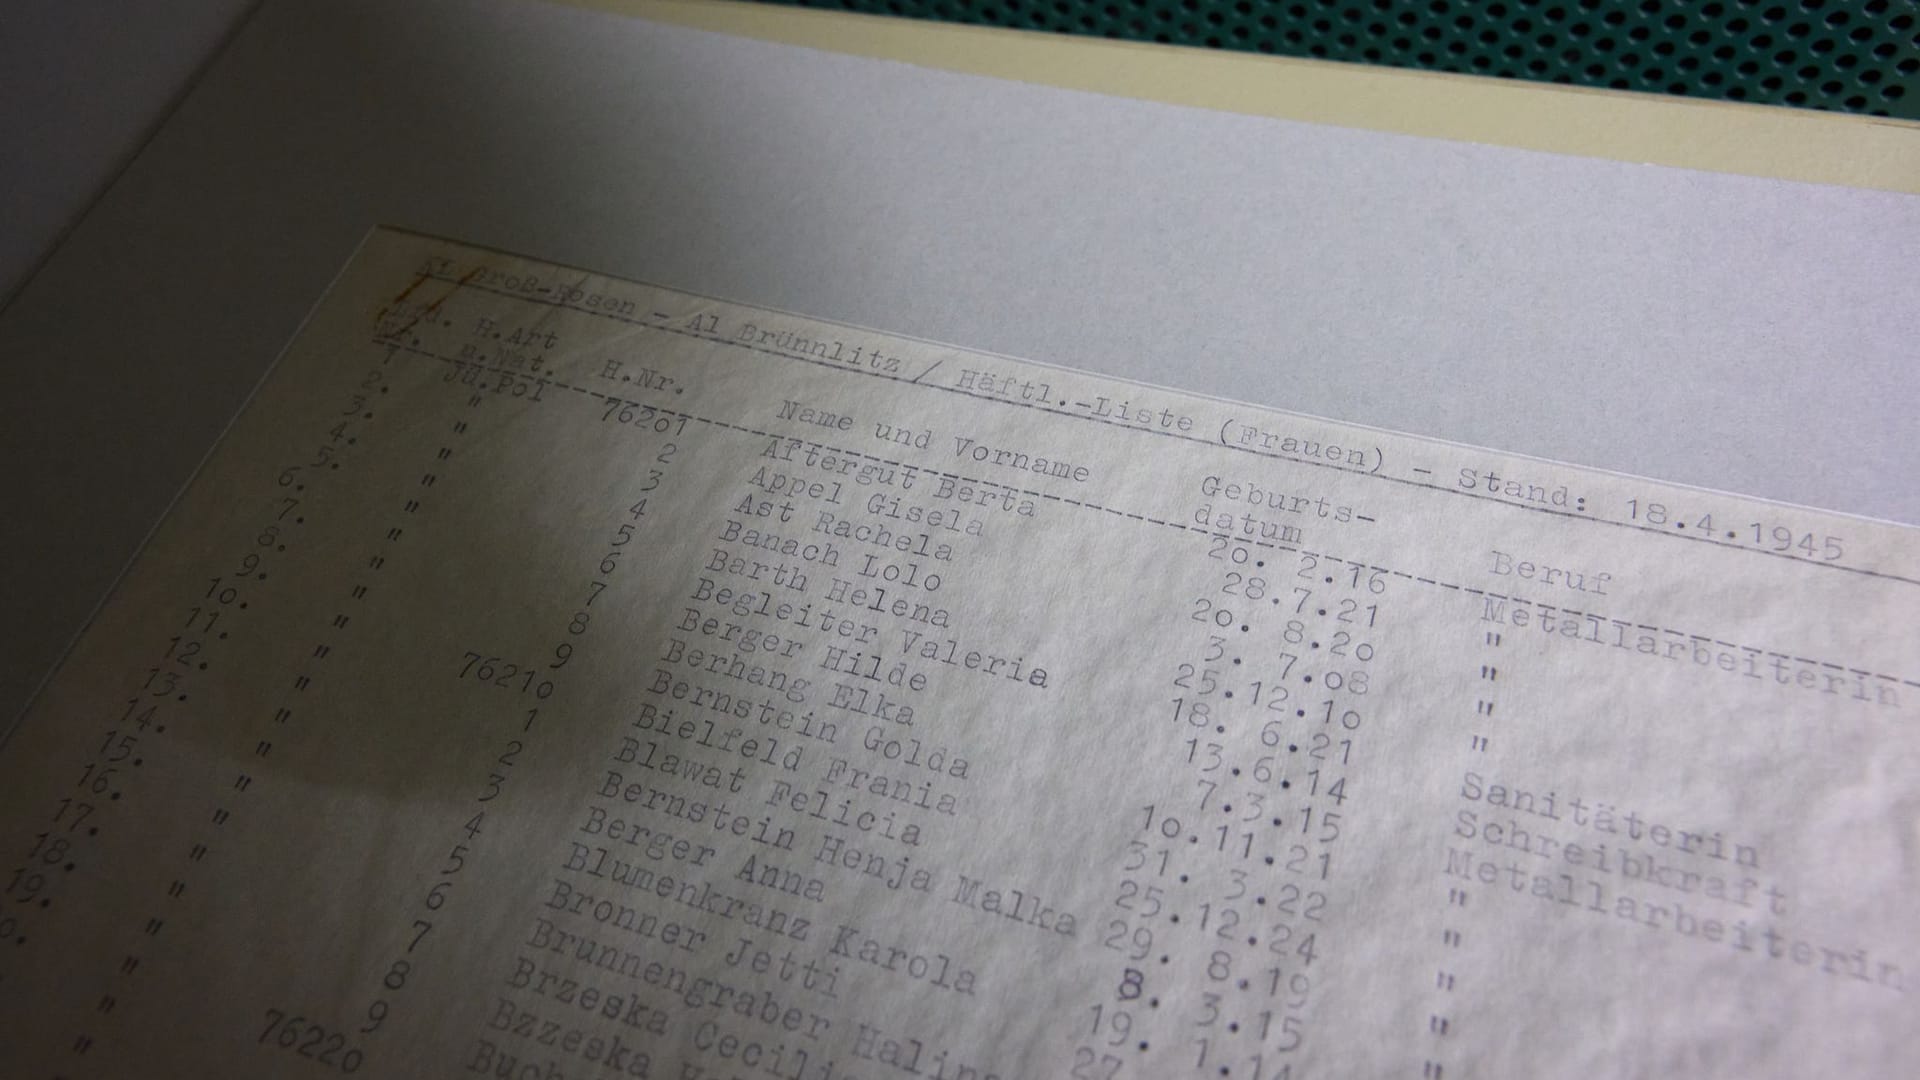 KL Groß-Rosen - Al Brünnlitz / Häftl.-Liste (Frauen) - Stand: 18.4.1945
Lfd. H.Art H.Nr. Name und Vorname Geburts- Beruf
Nr. u.Nat. datum
1 Jü.Pol 76201 Aftergut Berta 20. 2.16 Metallarbeiterin
2. " 2 Appel Gisela 28.7.21 "
3. " 3 Ast Rachela 20. 8.20 "
4. " 4 Banach Lolo 3. 7.08 "
5. " 5 Barth Helena 25.12.10 "
6. " 6 Begleiter Valeria 18. 6.21 Sanitäterin
7. " 7 Berger Hilde 13.6.14 Schreibkraft
8. " 8 Berhang Elka 7.3.15 Metallarbeiterin
9. " 9 Bernstein Golda 10.11.21 "
10. " 76210 Bielfeld Frania 31. 3.22 "
11. " 1 Blawat Felicia 25.12.24 "
12. " 2 Bernstein Henja Malka 29. 8.19 "
13. " 3 Berger Anna 8. 3.15 "
14. " 4 Blumenkranz Karola 19. 1.14
15. " 5 Bronner Jetti 27
16. " 6 Brunnengraber Halina
17. " 7 Brzeska Cecili
18. " 8 Bzzeska
19. " 9 Buch
" 76220